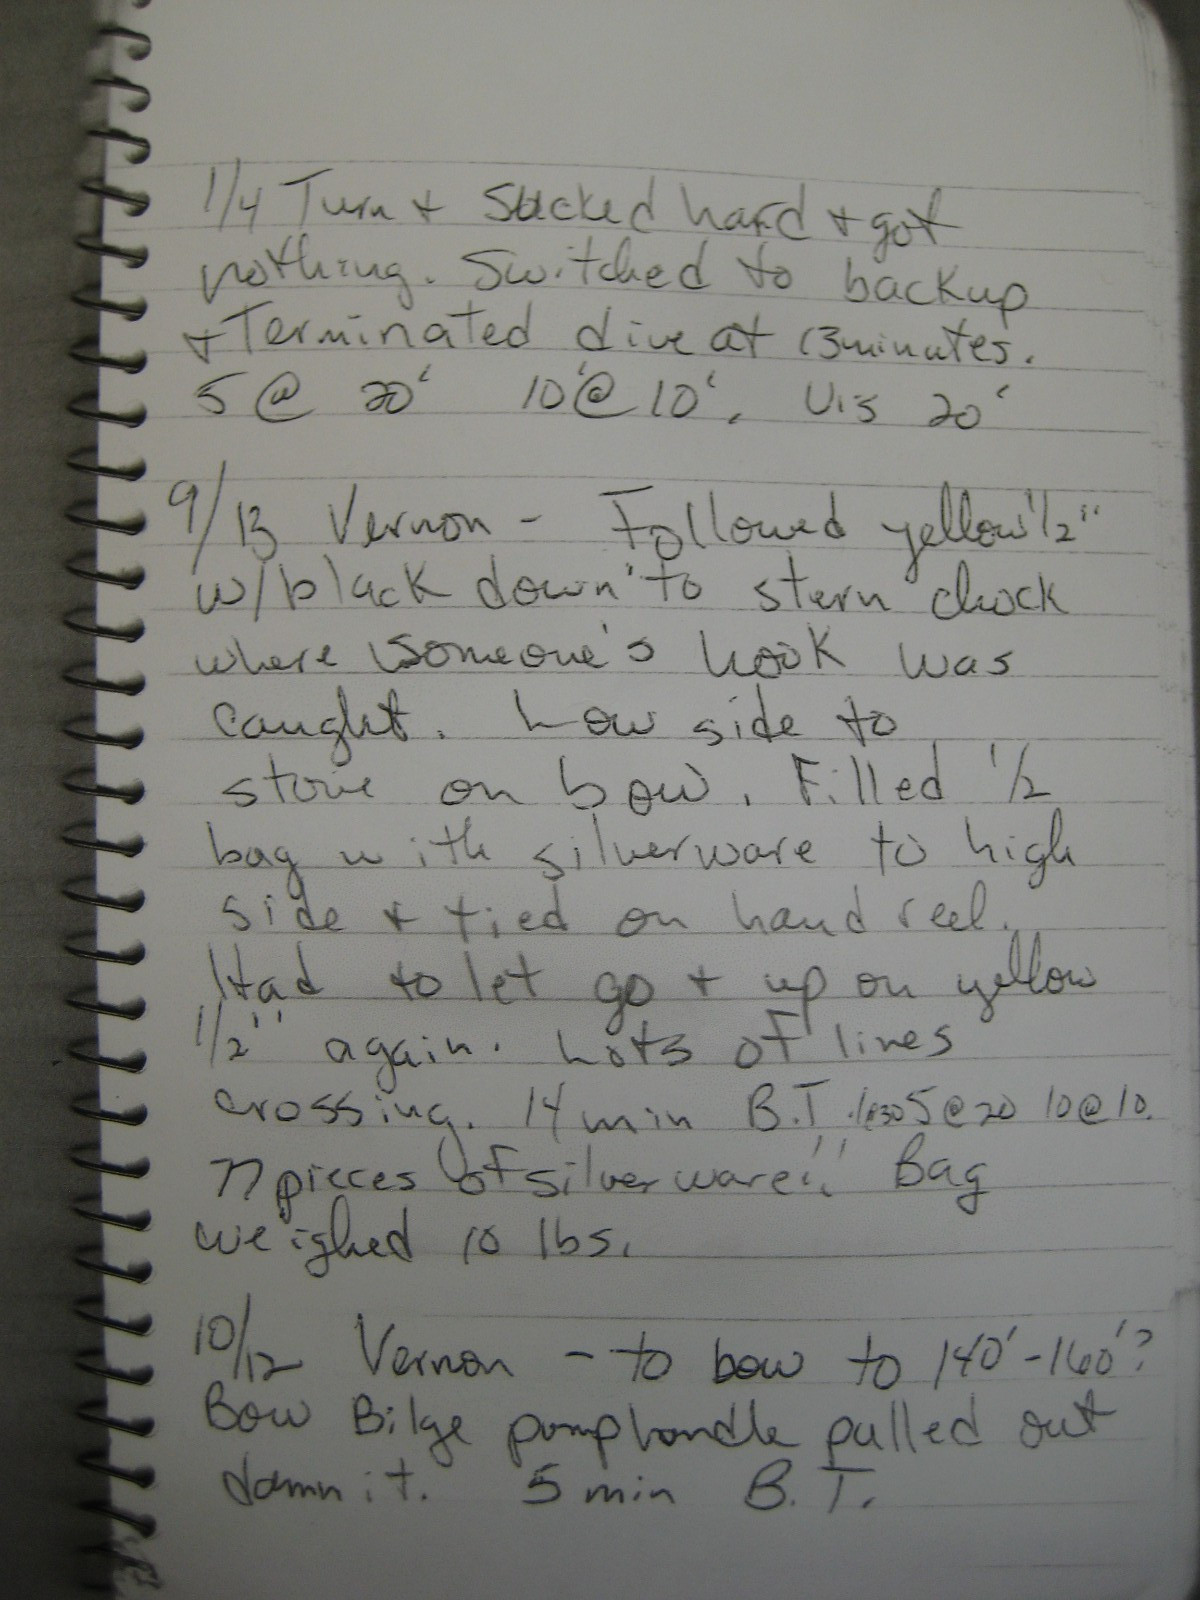 1/4 Turn + Sucked hard + got
nothing. Switched to backup
+ Terminated dive at 13 minutes.
5 @ 20' 10' @ 10', Vis 20'
9/13 Vernon - Followed yellow 1/2"
w/ black down to stern chock
where someone's hook was
caught. Low side to
stove on bow. Filled 1/2
bag with silverware to high
side + tied on hand reel.
Had to let go + up on yellow
1/2" again. Lots of lines
crossing. 14 min B.T. 5@20 10@10.
77 pieces of silverware!! Bag
weighed 10 lbs.
10/12 Vernon - to bow to 140'-160'?
Bow Bilge pump handle pulled out
damn it. 5 min B.T.